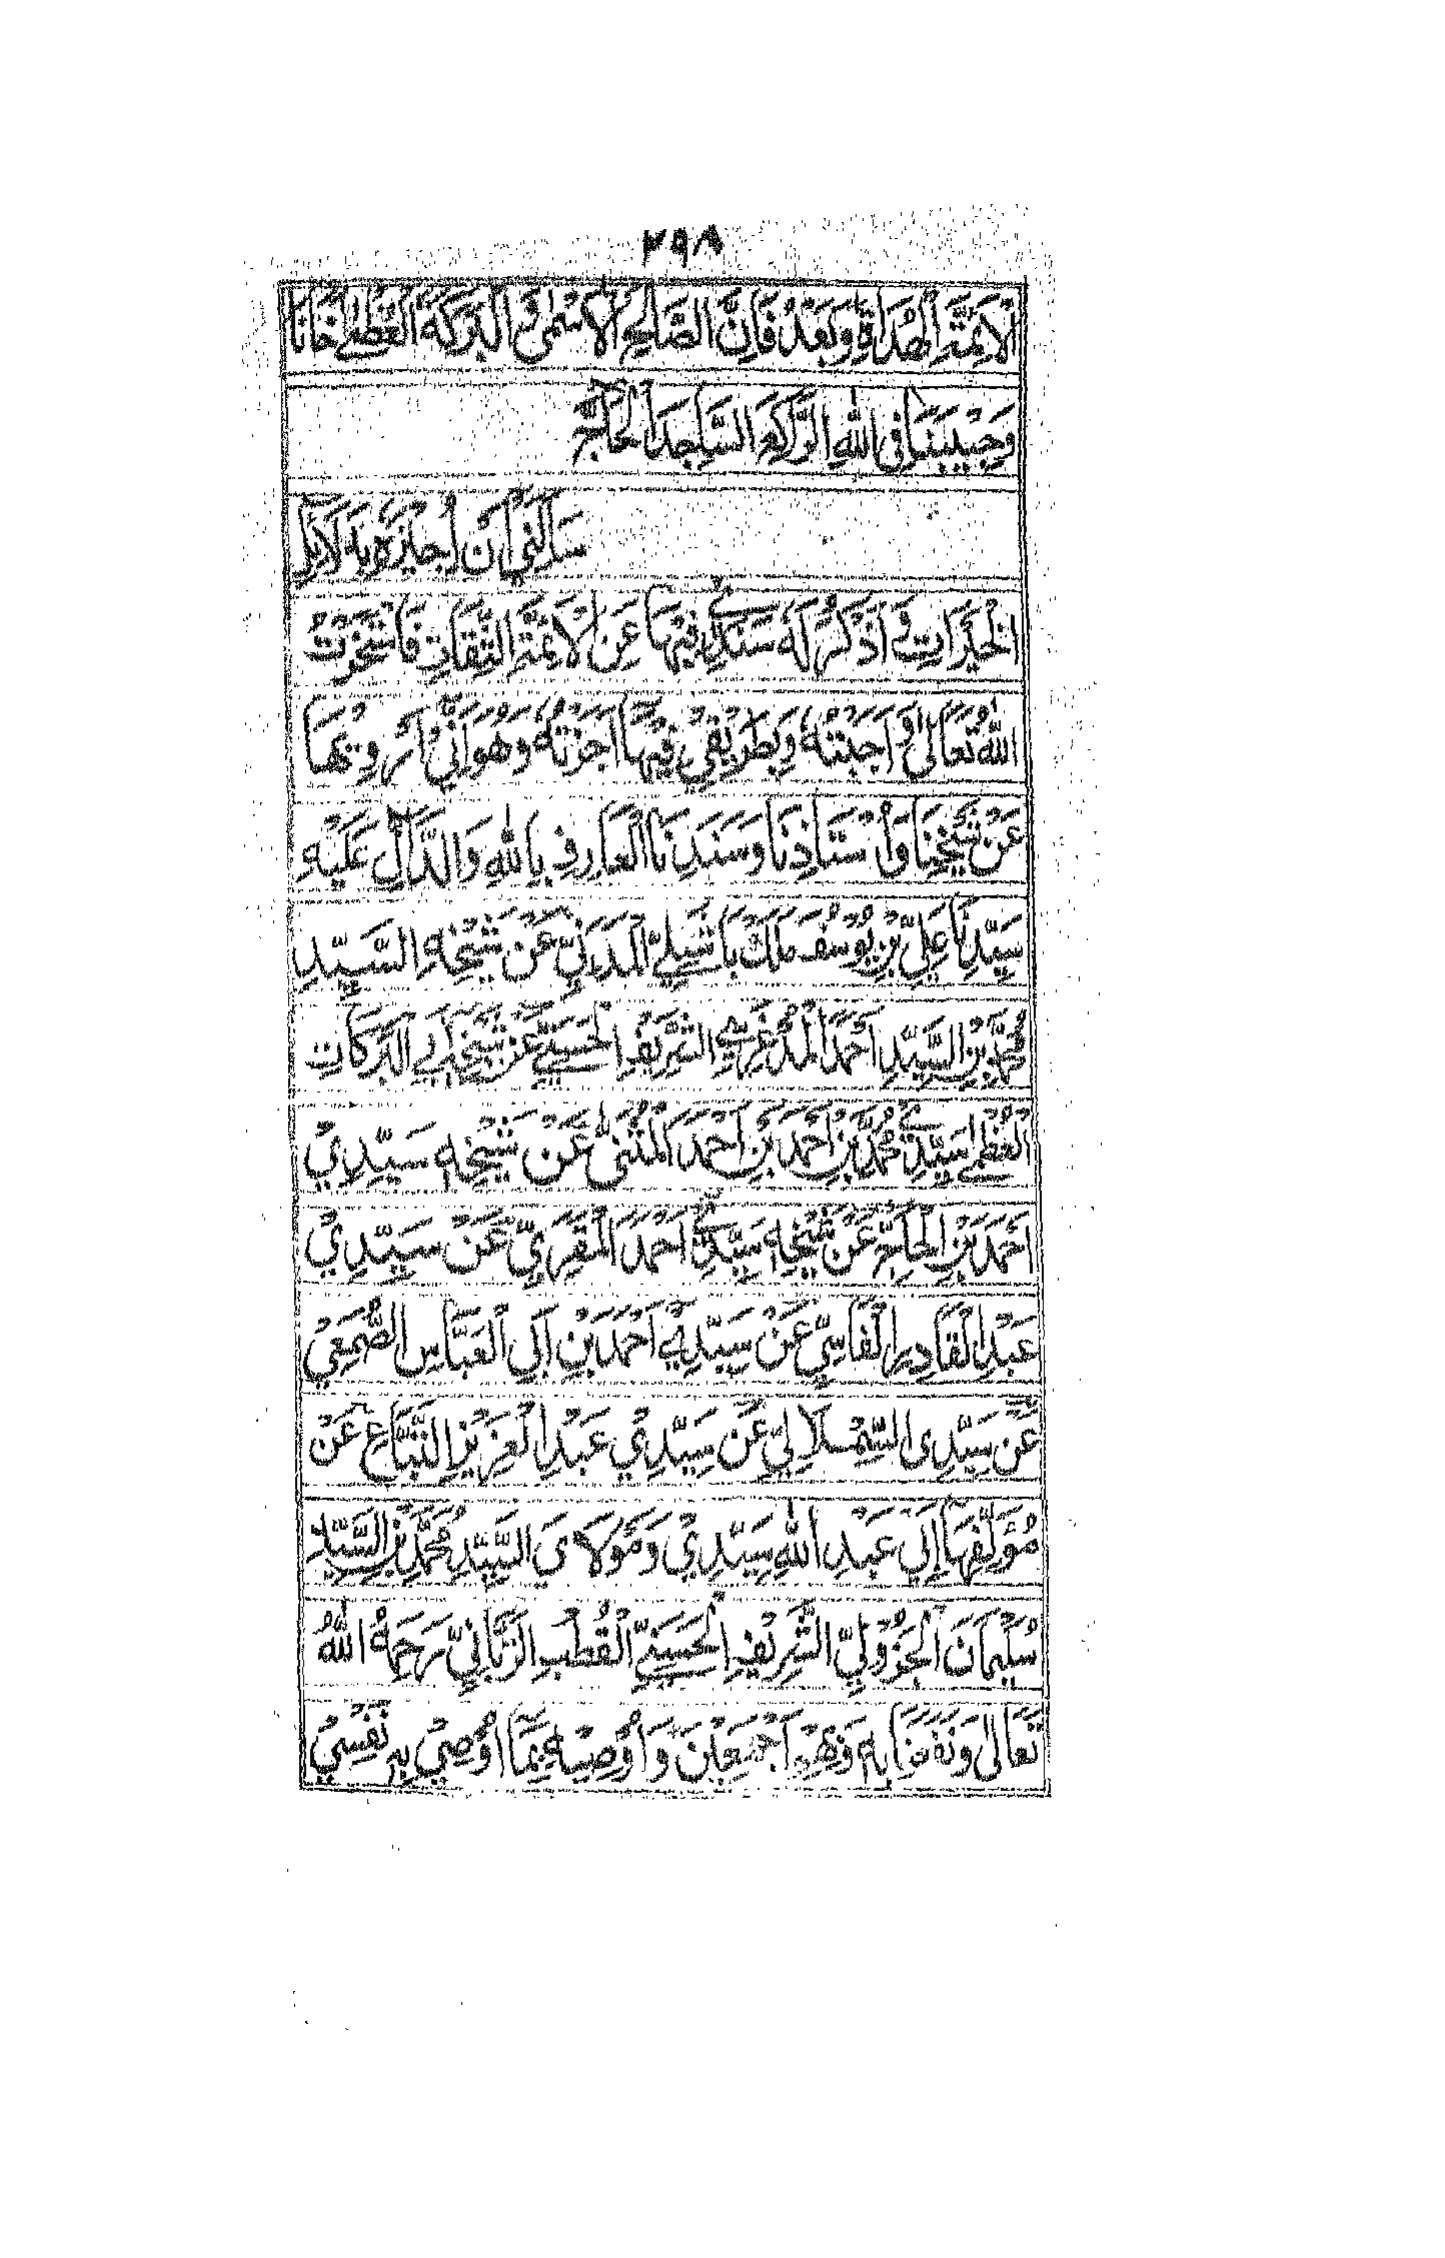 ٢٩٨
الْاَئِمَّةِ الْهُدَاةِ وَبَعْدُ فَاِنَّ الصَّالِحَ الْاَسْمٰى وَ الْبَرَكَةَ الْعُظْمٰى اَخَانَا
وَحَبِيْبَنَا فِى اللهِ الرَّاكِعَ السَّاجِدَ الْحَاجَّ
سَاَلَنِيْ اَنْ اُجِيْزَهٗ بِدَلَائِلِ
الْخَيْرَاتِ وَ اَذْكُرَ لَهٗ سَنَدِيْ فِيْهَا عَنِ الْاَئِمَّةِ الثِّقَاتِ فَاسْتَخَرْتُ
اللهَ تَعَالٰى وَ اَجَبْتُهٗ وَبِطَرِيْقِيْ فِيْهَا اَجَزْتُهٗ وَهُوَ اَنِّيْ اَرْوِيْهَا
عَنْ شَيْخِنَا وَاُسْتَاذِنَا وَسَنَدِنَا الْعَارِفِ بِاللهِ وَالدَّالِّ عَلَيْهِ
سَيِّدِنَا عَلِيِّ بْنِ يُوْسُفَ مَلَكْ بَاشَلِيِّ الْمَدَنِيِّ عَنْ شَيْخِهِ السَّيِّدِ
مُحَمَّدِ بْنِ السَّيِّدِ اَحْمَدَ الْمُدْغَرِيِّ الشَّرِيْفِ الْحَسَنِيِّ عَنْ شَيْخِهٖ اَبِي الْبَرَكَاتِ
الْعُظْمٰى سَيِّدِيْ مُحَمَّدِ بْنِ اَحْمَدَ بْنِ اَحْمَدَ الْمُثَنّٰى عَنْ شَيْخِهٖ سَيِّدِيْ
اَحْمَدَ بْنِ الْحَاجِّ عَنْ شَيْخِهٖ سَيِّدِيْ اَحْمَدَ الْمَقَرِيِّ عَنْ سَيِّدِيْ
عَبْدِ الْقَادِرِ الْفَاسِيِّ عَنْ سَيِّدِيْ اَحْمَدَ بْنِ اَبِي الْعَبَّاسِ الصُّمَعِيْ
عَنْ سَيِّدِى السِّمْلَالِيِّ عَنْ سَيِّدِيْ عَبْدِ الْعَزِيْزِ التَّبَّاعِ عَنْ
مُؤَلِّفِهَا اَبِيْ عَبْدِ اللهِ سَيِّدِيْ وَمَوْلَايَ السَّيِّدِ مُحَمَّدِ بْنِ السَّيِّدِ
سُلَيْمَانَ الْجَزُوْلِيِّ الشَّرِيْفِ الْحَسَنِيِّ الْقُطْبِ الرَّبَّانِيِّ رَحِمَهُ اللهُ
تَعَالٰى وَنَفَعَنَا بِهٖ وَبِهِمْ اَجْمَعِيْنَ وَاُوْصِيْهِ بِمَا اُوْصِيْ بِهٖ نَفْسِيْ